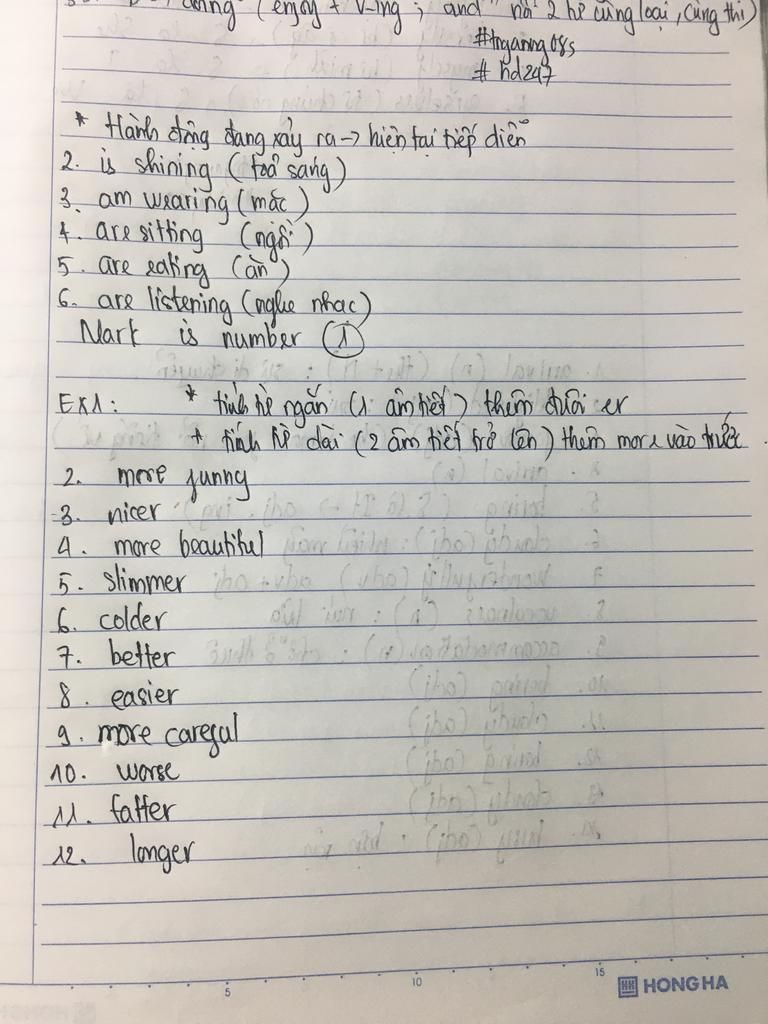 (enjoy + V-ing ; "and" nối 2 từ cùng loại, cùng thì)
#tngannng08s
# hd247
* Hành động đang xảy ra → hiện tại tiếp diễn
2. is shining (toả sáng)
3. am wearing (mặc)
4. are sitting (ngồi)
5. are eating (ăn)
6. are listening (nghe nhạc)
Mark is number ①
EX1: * tính từ ngắn (1 âm tiết) thêm đuôi er
+ tính từ dài (2 âm tiết trở lên) thêm more vào trước
2. more funny
3. nicer
4. more beautiful
5. slimmer
6. colder
7. better
8. easier
9. more careful
10. worse
11. fatter
12. longer
5 10 15
HH HONG HA